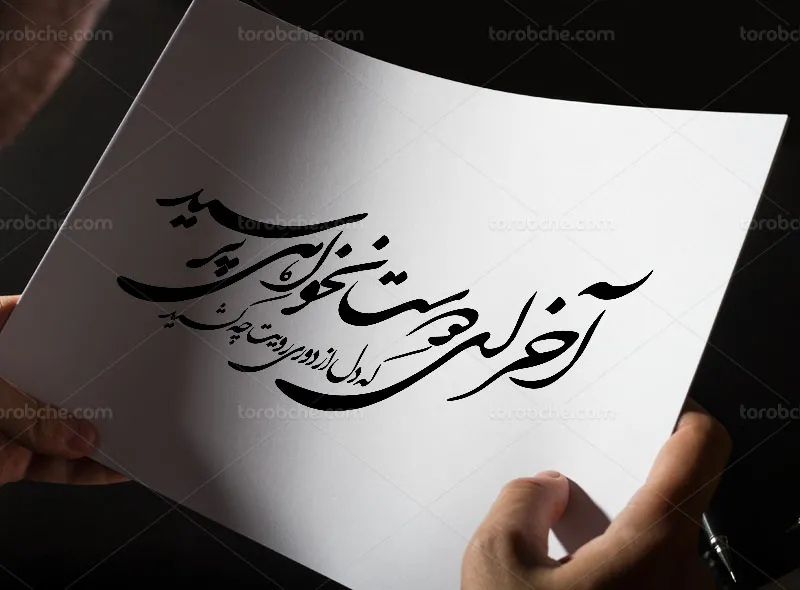 آخر ای دوست نخواهی پرسید
که دل از دوری رویت چه کشید
torobche.com torobche.com torobche.com torobche.com
torobche.com torobche.com torobche.com torobche.com
torobche.com torobche.com torobche.com torobche.com